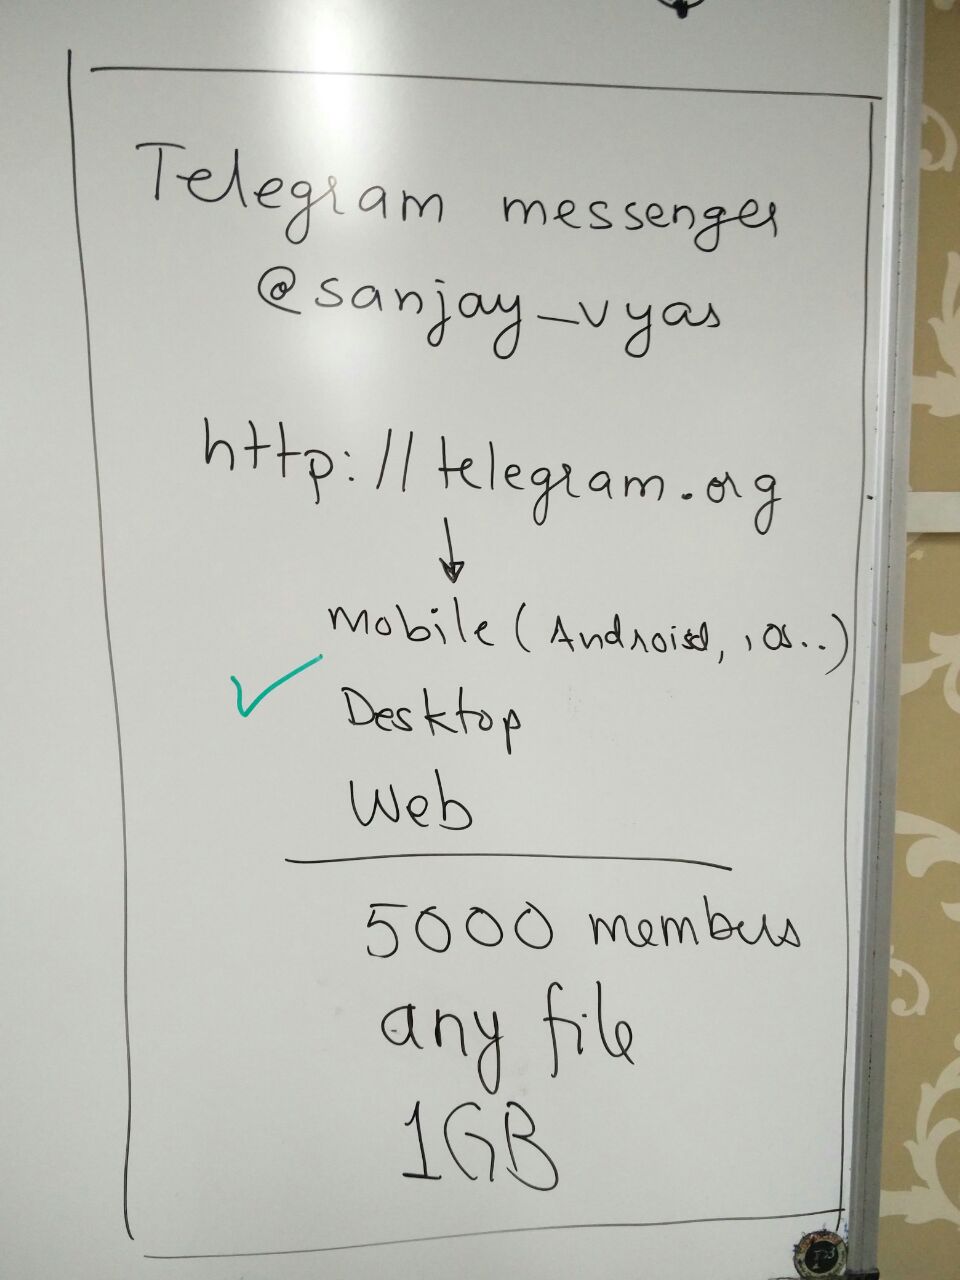 Telegram messenger
@sanjay_vyas
http://telegram.org
mobile (Android, ios..)
Desktop
Web
5000 members
any file
1GB